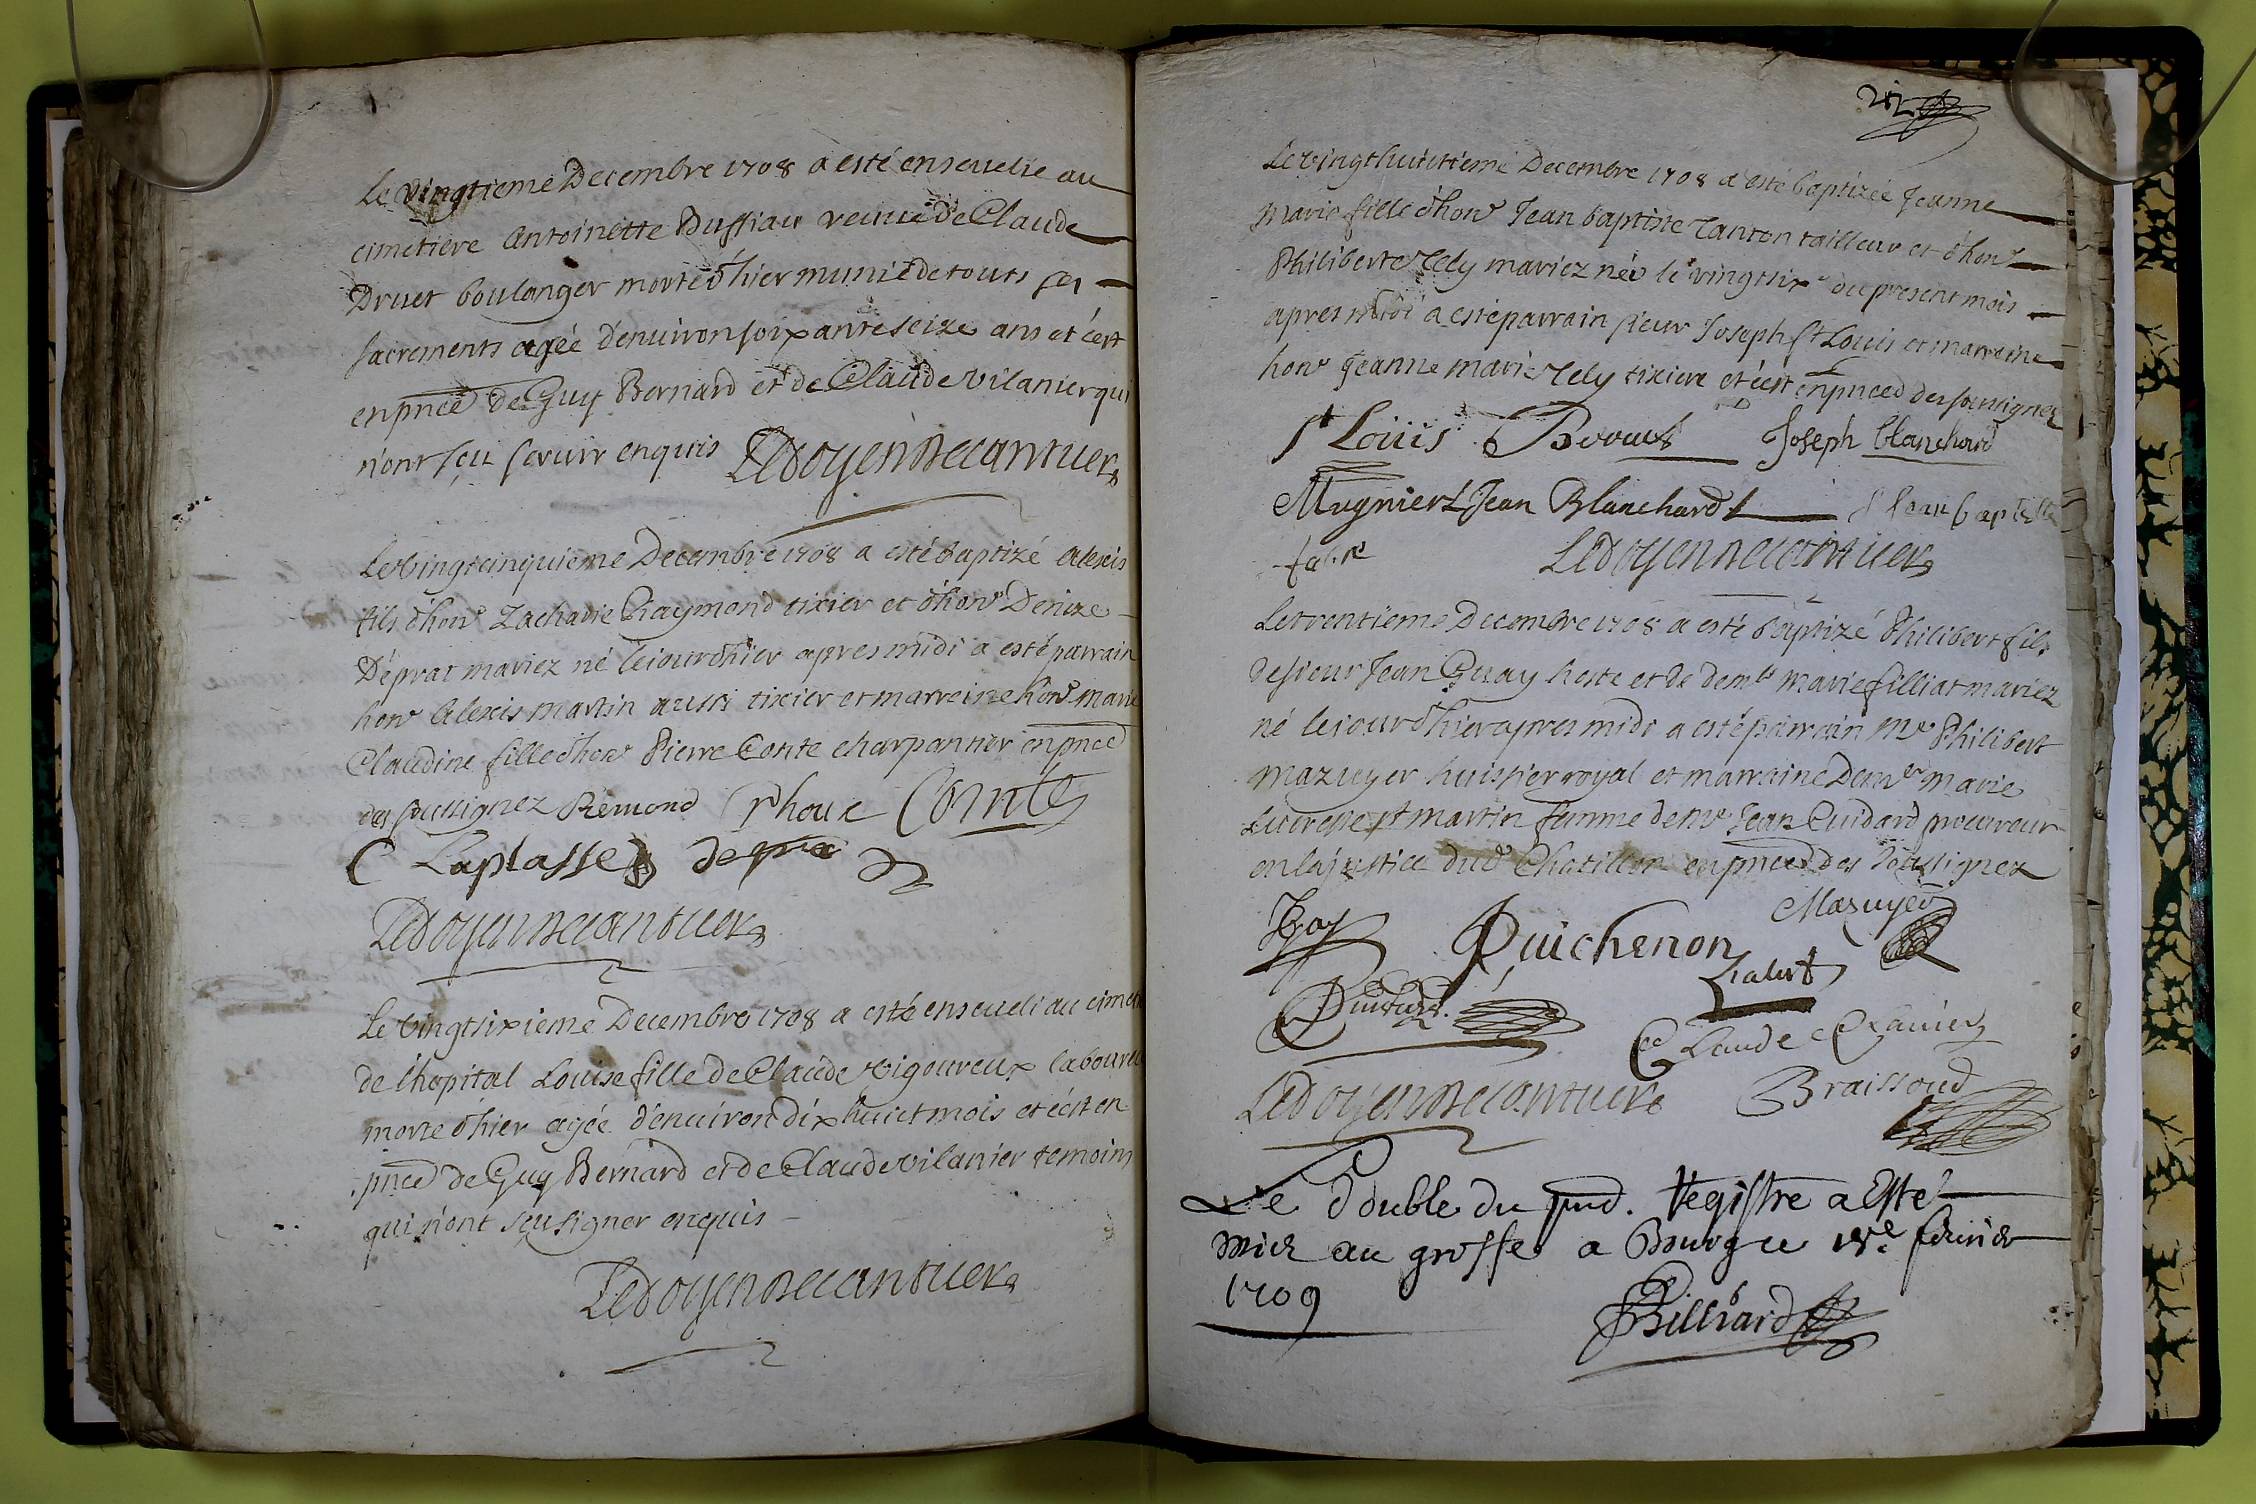 Le vingtieme Decembre 1708 a esté enseuelie au
cimetiere Antoinette Buffiau veuue de Claude
Druet boulanger morte d'hier munie de touts ses
sacrements agée d'enuiron soixante seize ans et c'est
en pnce de Guy Bernard et de Claude vilanier qui
n'ont sçu scauir enquis Ledoyen Decantuers
Le vingt cinquieme Decembre 1708 a esté baptizé Alexis
fils d'hon Zacharie Raymond tixier et d'hon Denize
Déprat mariez né le iour d'hier apres midi a esté parrain
hon Alexis Martin aussi tixier et marreine hon marie
Claudine fille d'hon Pierre Conte charpantier en pnce
des soussignez Remond Conte
C Laplasse depra
Ledoyen Decantuers
Le vingt sixieme Decembre 1708 a esté enseueli au cimet
de l'hopital Louise fille de Claude Vigoureux laboure
morte d'hier agée d'enuiron dix huict mois et c'est en
pnce de Guy Bernard et de Claude vilanier temoins
qui n'ont sçu signer enquis
Ledoyen Decantuers
Le vingt huictieme Decembre 1708 a esté baptizée Jeanne
Marie fille d'hon Jean baptiste Tanton tailleur et d'hon
Philiberte Tely mariez née le vingt six du present mois
apres midi a esté parrain sieur Joseph St Louis et marreine
hon Jeanne marie Tely tixiere et c'est en pnce des soussignez
St Louis Joseph blanchard
Mugnier Jean Blanchard Jean baptiste
fabre Ledoyen Decantuers
Le trentieme Decembre 1708 a esté baptizé Philibert fils
de sieur Jean Guay hoste et de demlle marie filliat mariez
né le iour d'hier apres midi a esté parrain Mr Philibert
Mazuyer huissier royal et marraine Demlle Marie
Lucrepe st martin femme de mr Jean Cuidard procureur
en la justice dud Chatillon en pnce des soussignez
Guichenon Mazuyer
Claude
Ledoyen Decantuers Braissoud
Le double du pnd. Registre a Esté
mis au groffe a Bourg ce 15e feurier
1709
Billiard